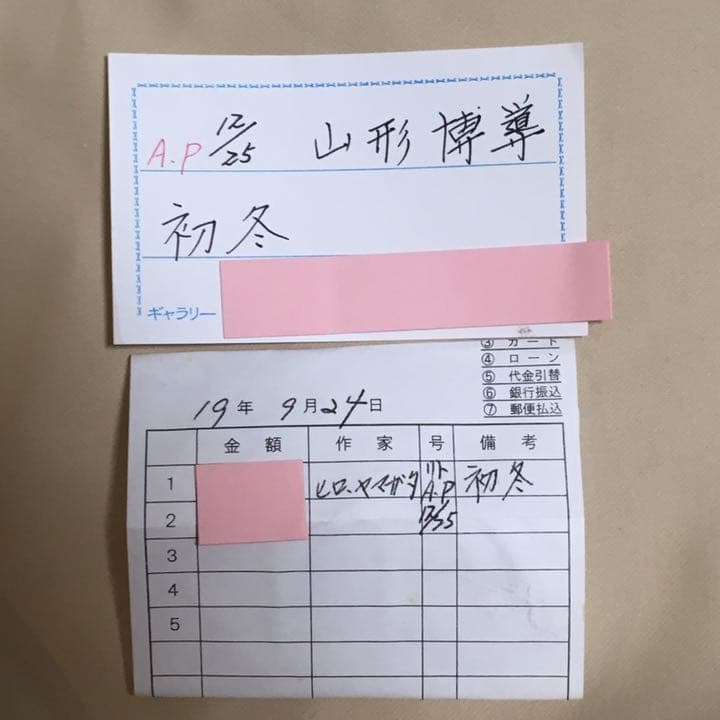 A.P 12/25 山形博導
初冬
ギャラリー
③ カード
④ ローン
⑤ 代金引替
⑥ 銀行振込
⑦ 郵便払込
19年 9月24日
金額 作家 号 備考
1 ヒロ・ヤマガタ リト A.P 初冬
2 12/25
3
4
5